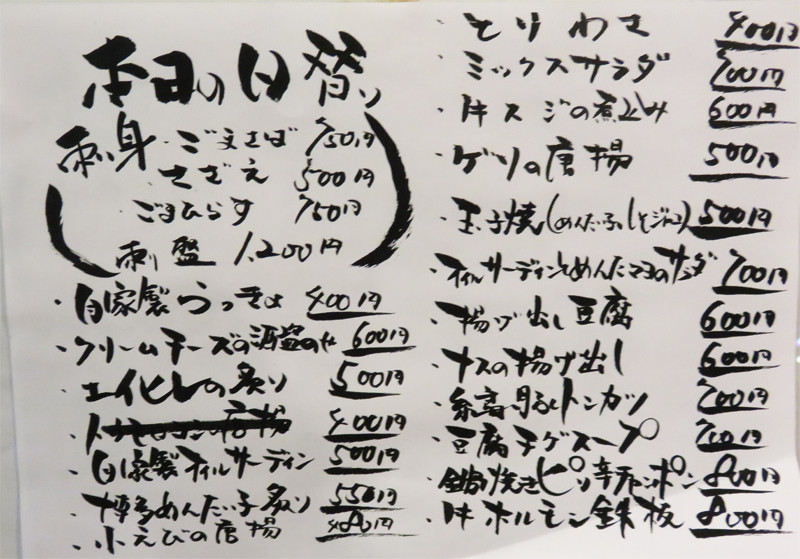 本日の日替り
刺身・ごまさば 750円
・さざえ 500円
・ごまひらす 750円
刺盛 1,200円
・自家製らっきょ 400円
・クリームチーズの酒盗のせ 600円
・エイヒレの炙り 500円
・の唐揚 400円
・自家製オイルサーディン 500円
・博多めんたい子炙り 550円
・小えびの唐揚 480円
・とりわさ 400円
・ミックスサラダ 700円
・牛スジの煮込み 600円
・ゲソの唐揚 500円
・玉子焼(めんたい子、しそとジャコ) 500円
・オイルサーディンとめんたいマヨのサラダ 700円
・揚げ出し豆腐 600円
・ナスの揚げ出し 600円
・糸島豚トンカツ 700円
・豆腐チゲスープ 700円
・鉄鍋焼きピリ辛チャンポン 800円
・牛ホルモン鉄板 800円